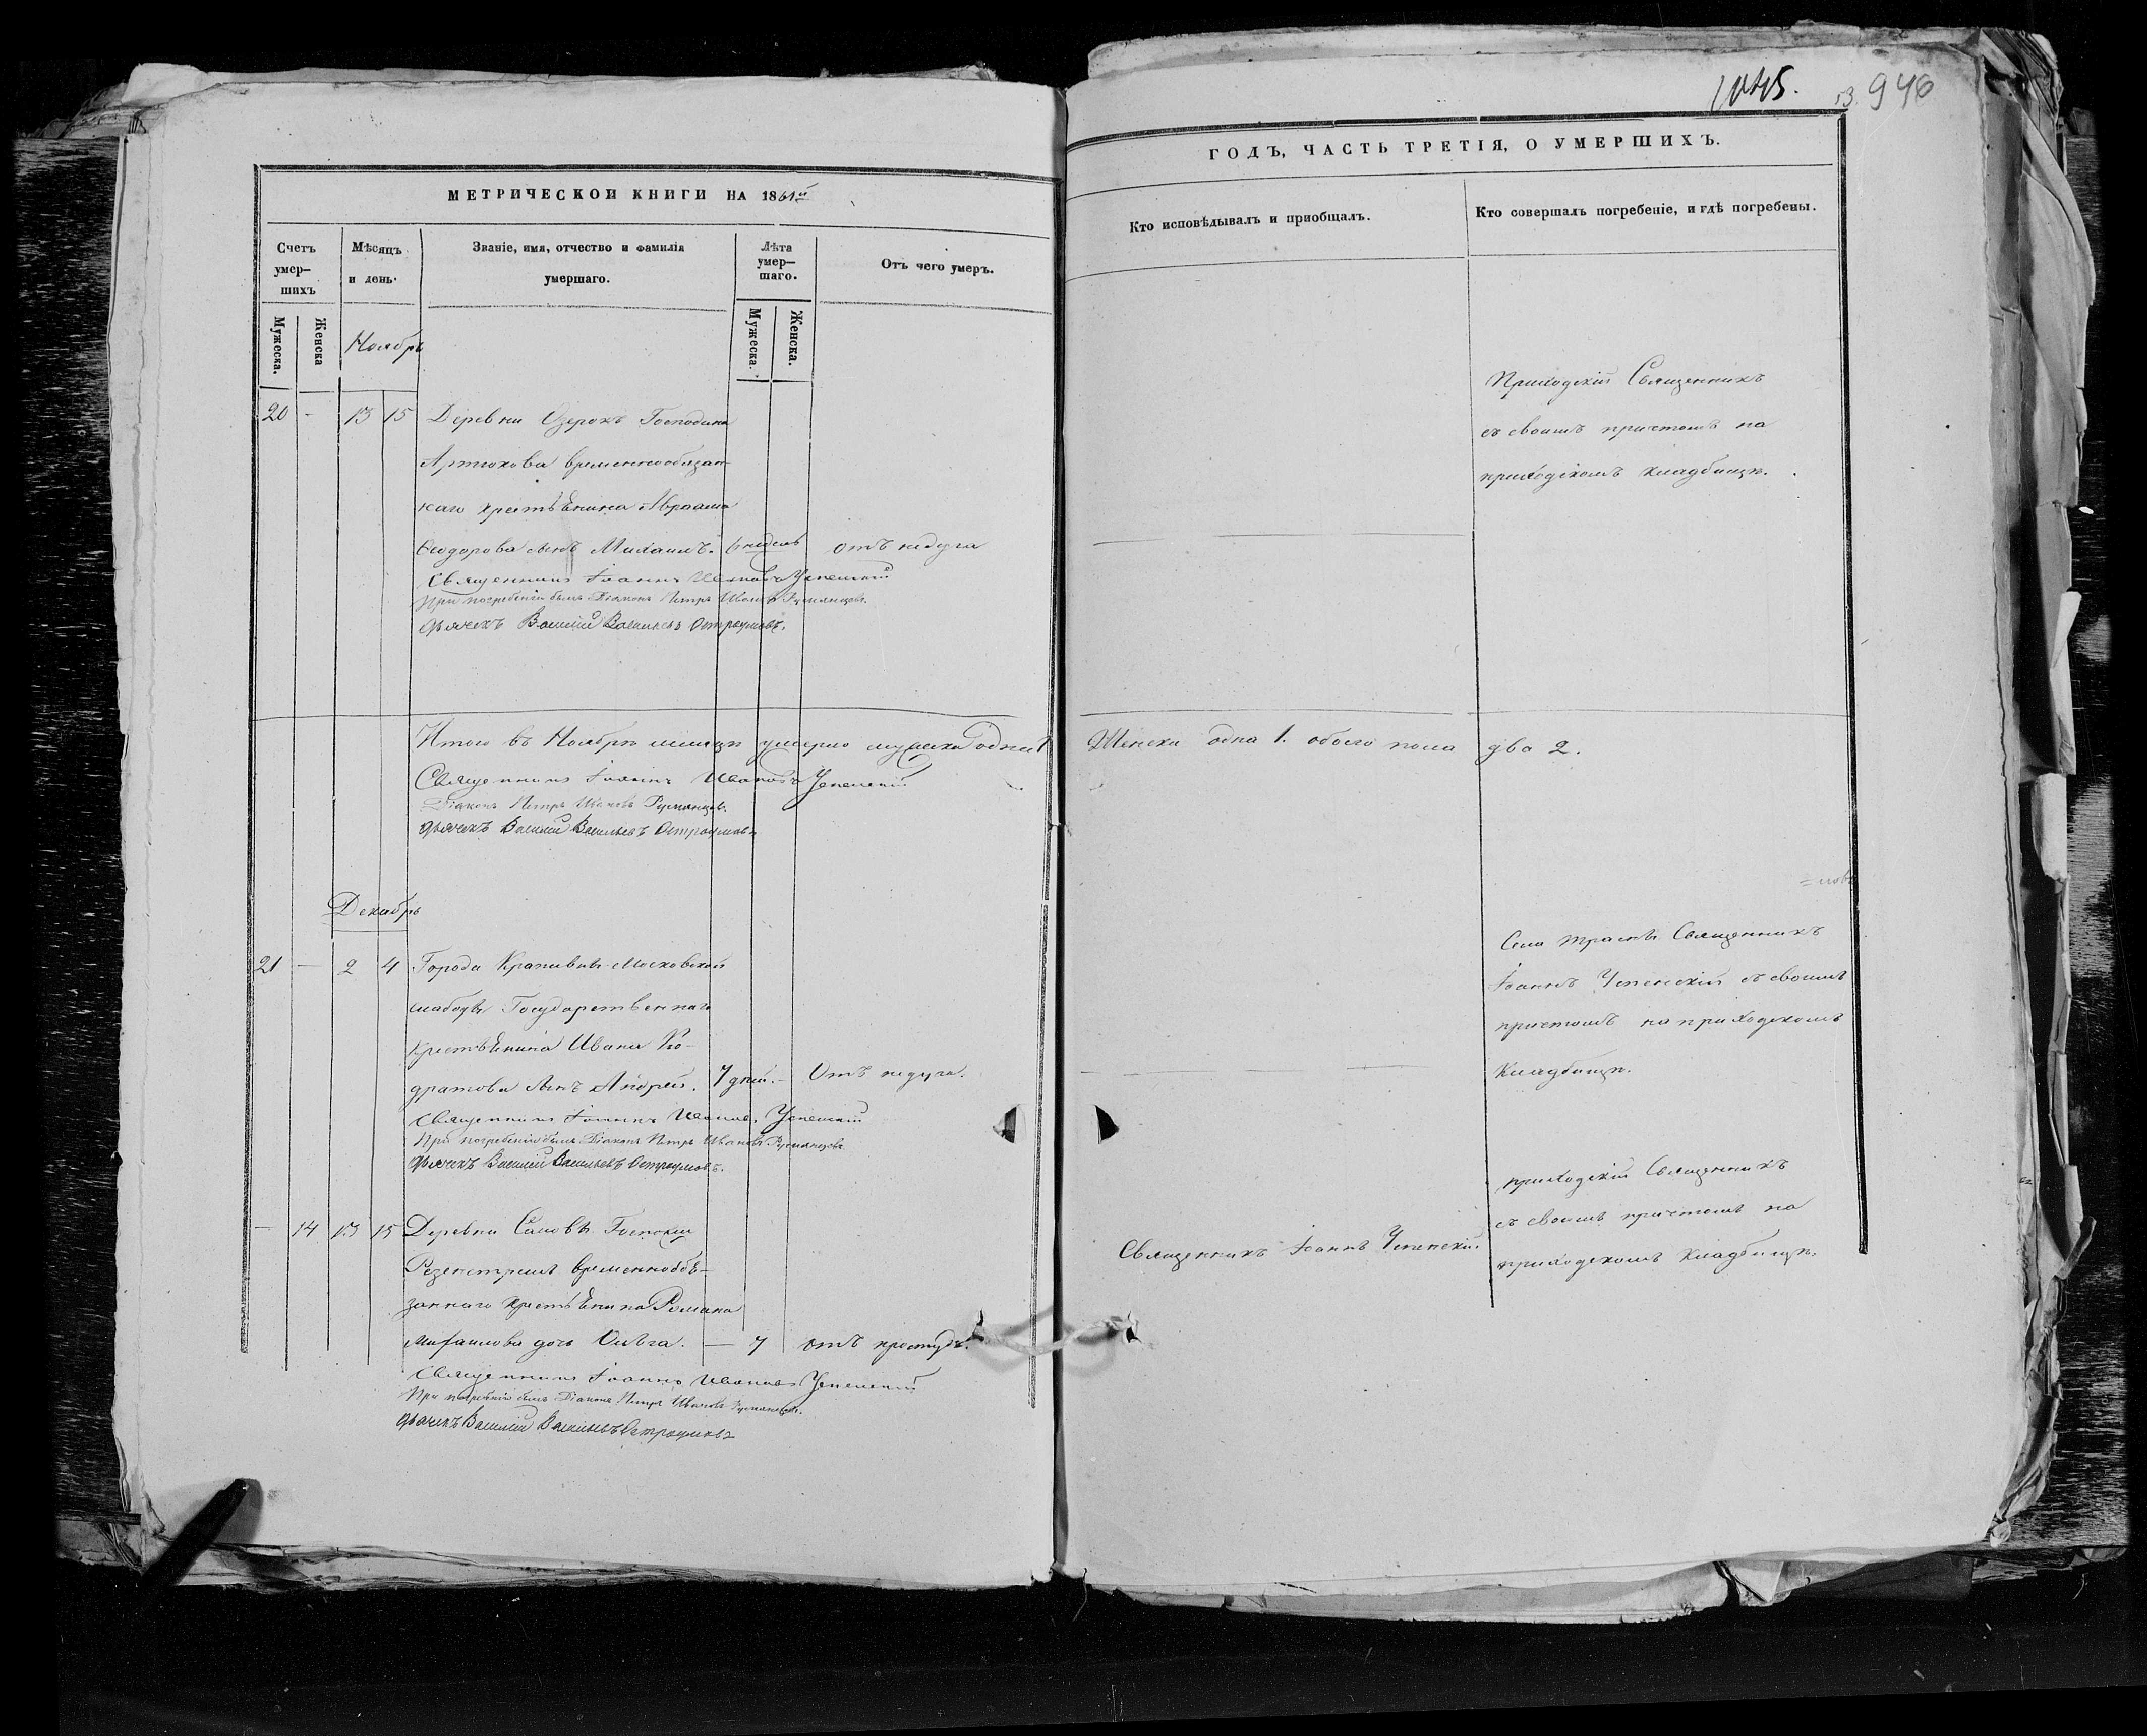 1045.
940
МЕТРИЧЕСКОЙ КНИГИ НА 1861й
ГОДЪ, ЧАСТЬ ТРЕТІЯ, О УМЕРШИХЪ.
Счетъ умер–шихъ
Мѣсяцъ и день.
Званіе, имя, отчество и фамилія умершаго.
Лѣта умер–шаго.
Отъ чего умеръ.
Кто исповѣдывалъ и пріобщалъ.
Кто совершалъ погребеніе, и гдѣ погребены.
Мужеска.
Женска
Мужеска.
Женска.
Ноябрь
20 - 13 15 Деревни Озерокъ Господина
Артюхова временнообязан-
наго крестьѣнина Авраама
Ѳеодорова сынъ Михаилъ. 6 недѣль отъ недуга
Священникъ Іоаннъ Ивановъ Успенскій
При погребеніи былъ Діаконъ Петръ Ивановъ Румянцовъ.
Дьячекъ Василій Васильевъ Остроумовъ.
Приходскій Священникъ
съ своимъ причтомъ на
приходскомъ кладбищѣ.
Итого въ Ноябрѣ мѣсяцѣ умерло мужеска одинъ 1 Женска одна 1. обоего пола два 2.
Священникъ Іоаннъ Ивановъ Успенскій
Діаконъ Петръ Ивановъ Румянцовъ.
Дьячекъ Василій Васильевъ Остроумовъ
Декабрь
21 — 2 4 Города Крапивны Московской
слабоды Государственнаго
крестьѣнина Ивана Ко-
дратова сынъ Андрей. 7 дней. – Отъ недуга.
Священникъ Іоаннъ Ивановъ Успенскій
При погребеніи былъ Діаконъ Петръ Ивановъ Румянцовъ
Дьячекъ Василій Васильевъ Остроумовъ.
Села Священникъ
Іоаннъ Успенскій съ своимъ
причтомъ на приходскомъ
Кладбищѣ.
— 14 13 15 Деревни Госпожи
временнообѣ-
заннаго крестьѣнина Романа
Михаилова дочь Ольга. — 7 отъ простуды.
Священникъ Іоаннъ Ивановъ Успенскій
При погребеніи былъ Діаконъ Петръ Ивановъ Румянцовъ.
Дьячекъ Василій Васильевъ Остроумовъ
Священникъ Іоаннъ Успенскій.
приходскій Священникъ
съ своимъ причтомъ на
приходскомъ кладбищѣ.